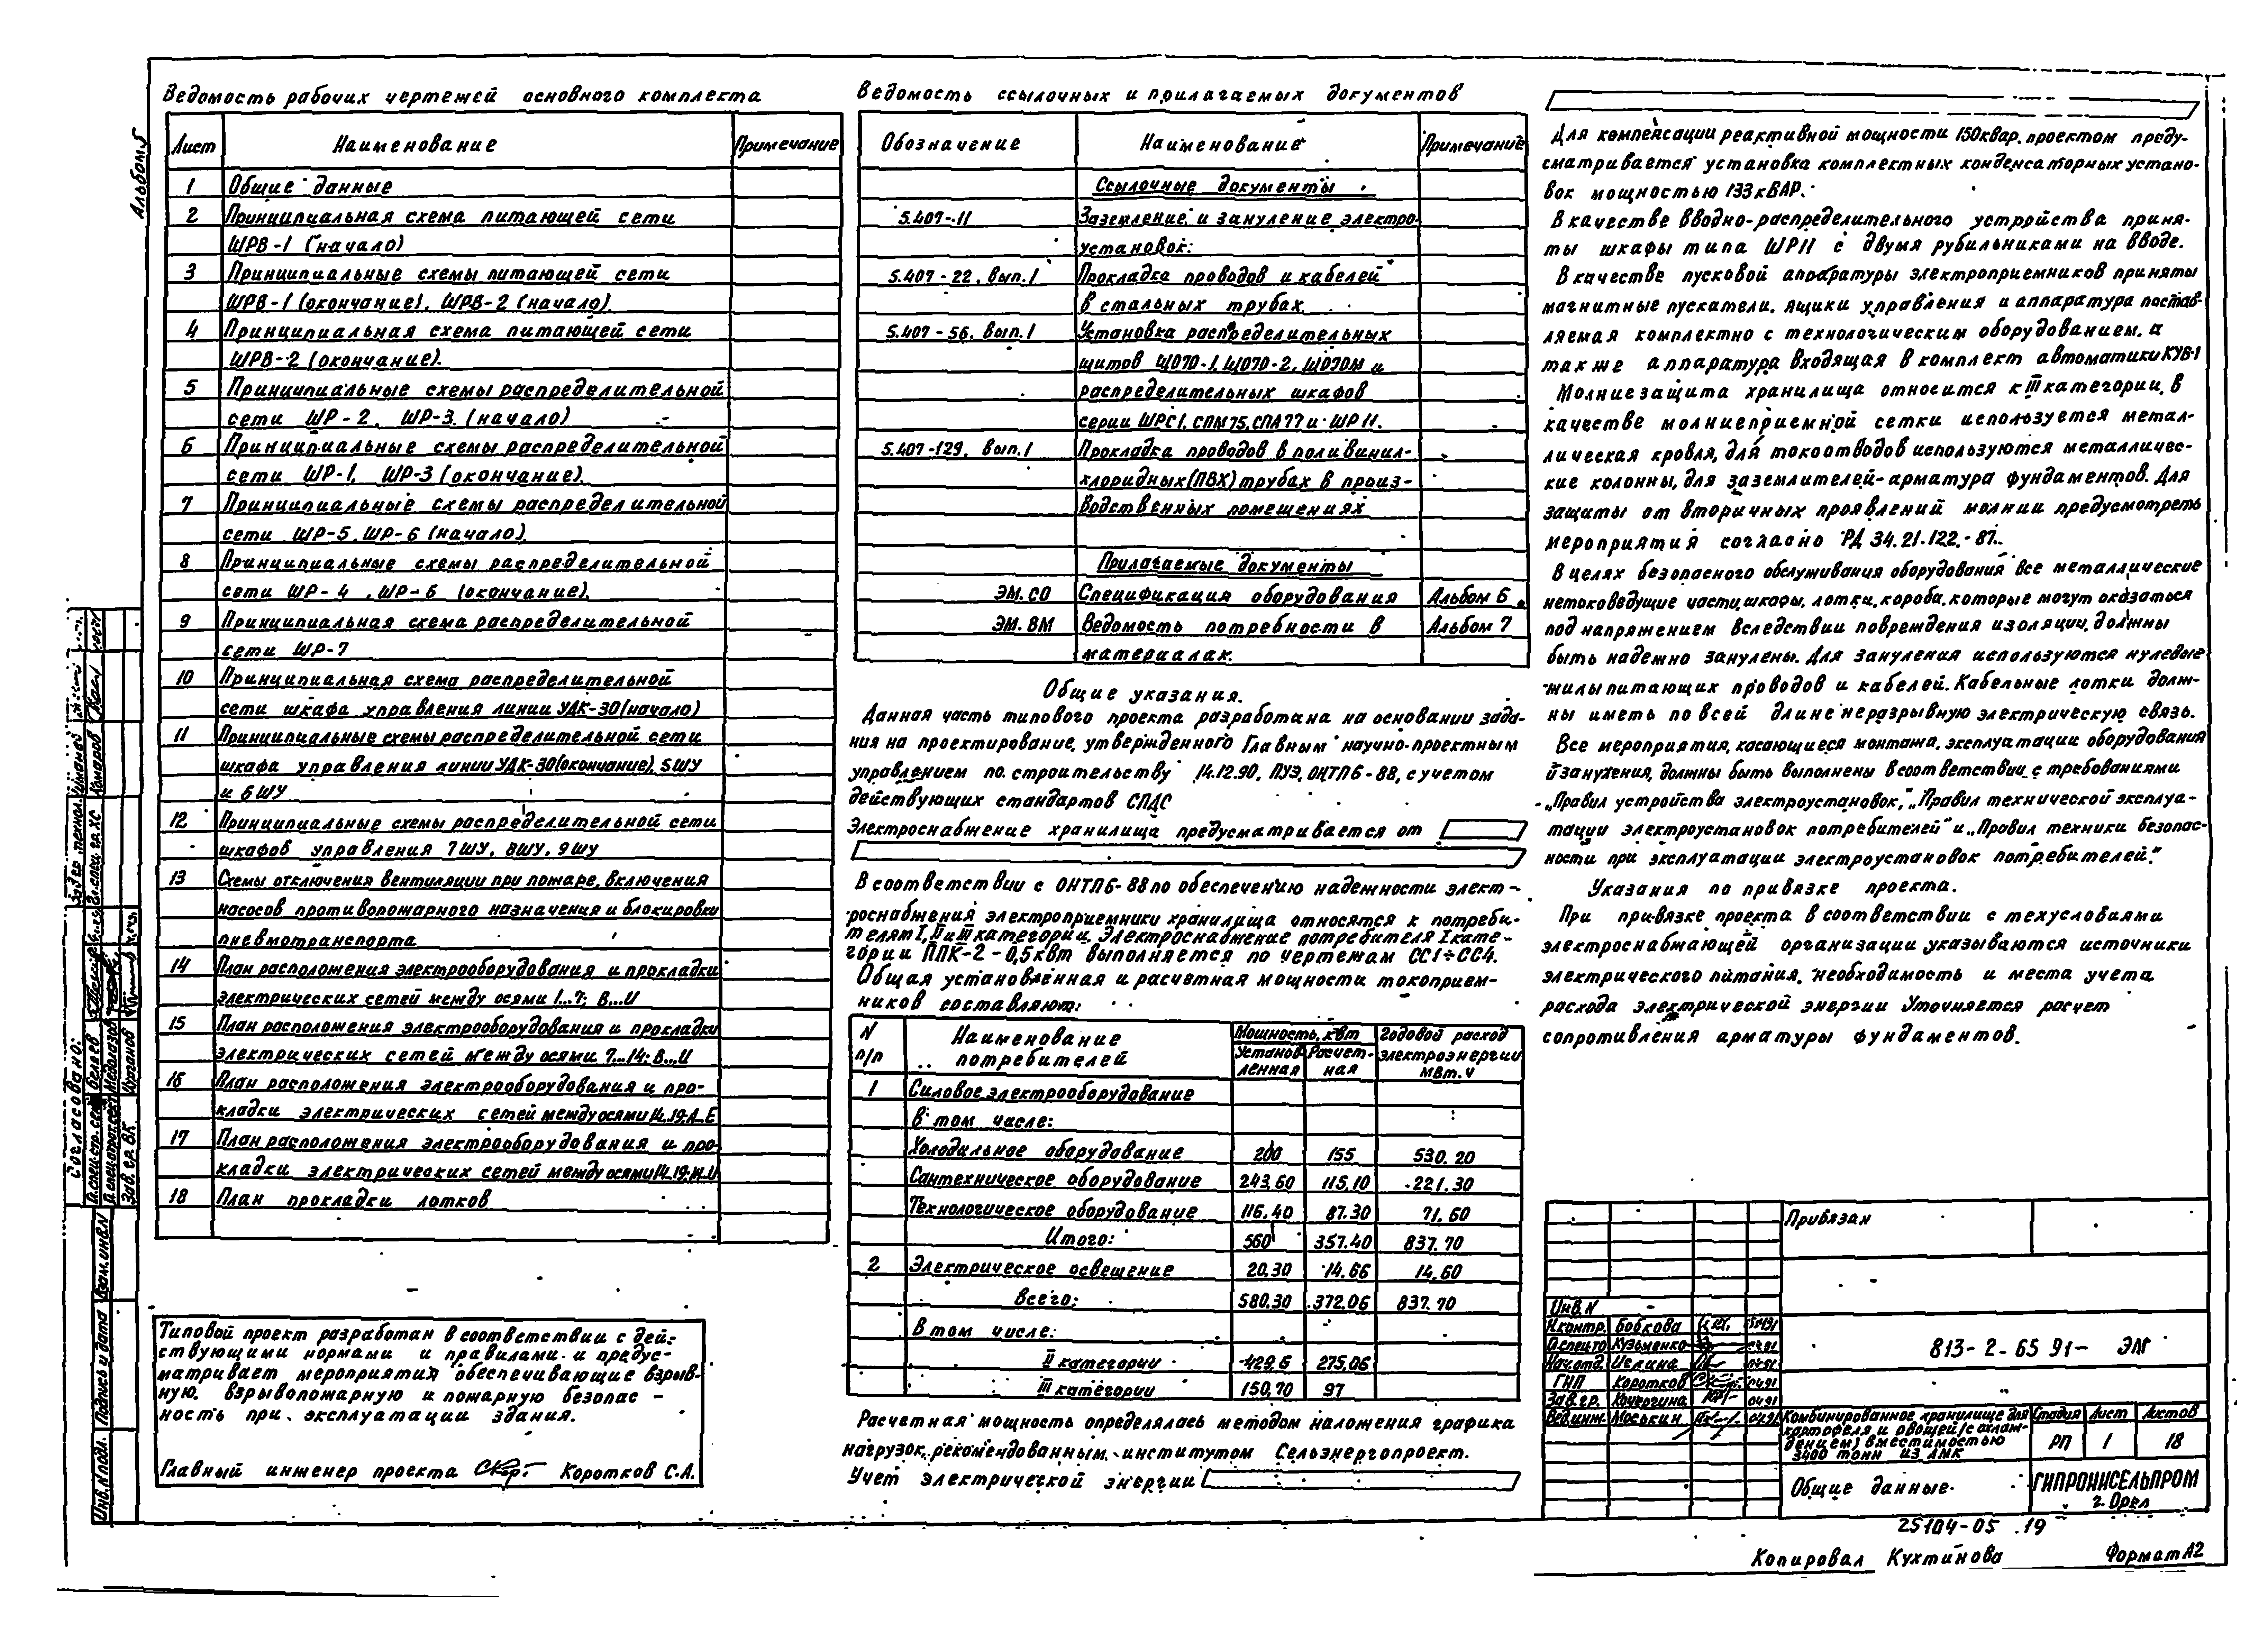 Альбом 5
Ведомость рабочих чертежей основного комплекта
Лист Наименование Примечание
1 Общие данные
2 Принципиальная схема питающей сети
ШРВ-1 (начало)
3 Принципиальные схемы питающей сети
ШРВ-1 (окончание), ШРВ-2 (начало).
4 Принципиальная схема питающей сети
ШРВ-2 (окончание).
5 Принципиальные схемы распределительной
сети ШР-2, ШР-3. (начало)
6 Принципиальные схемы распределительной
сети ШР-1, ШР-3 (окончание).
7 Принципиальные схемы распределительной
сети ШР-5, ШР-6 (начало)
8 Принципиальные схемы распределительной
сети ШР-4, ШР-6 (окончание).
9 Принципиальная схема распределительной
сети ШР-7
10 Принципиальная схема распределительной
сети шкафа управления линии УДК-30 (начало)
11 Принципиальные схемы распределительной сети
шкафа управления линии УДК-30 (окончание), 5ШУ
и 6ШУ
12 Принципиальные схемы распределительной сети
шкафов управления 7ШУ, 8ШУ, 9ШУ
13 Схемы отключения вентиляции при пожаре, включения
насосов противопожарного назначения и блокировки
пневмотранспорта
14 План расположения электрооборудования и прокладки
электрических сетей между осями 1...7; В...И
15 План расположения электрооборудования и прокладки
электрических сетей между осями 7...14; В...И
16 План расположения электрооборудования и про-
кладки электрических сетей между осями 14..19; А...Е
17 План расположения электрооборудования и про-
кладки электрических сетей между осями 14..19; Ж..И
18 План прокладки лотков
Типовой проект разработан в соответствии с дей-
ствующими нормами и правилами и предус-
матривает мероприятия обеспечивающие взрыв-
ную, взрывопожарную и пожарную безопас-
ность при эксплуатации здания.
Главный инженер проекта Коротков С.А.
Ведомость ссылочных и прилагаемых документов
Обозначение Наименование Примечание
Ссылочные документы
5.407-11 Заземление и зануление электро-
установок.
5.407-22, вып.1 Прокладка проводов и кабелей
в стальных трубах
5.407-56, вып.1 Установка распределительных
щитов ЩО70-1, ЩО70-2, ЩО70М и
распределительных шкафов
серии ШРС1, СПМ75, СПА77 и ШР11.
5.407-129, вып.1 Прокладка проводов в поливинил-
хлоридных (ПВХ) трубах в произ-
водственных помещениях
Прилагаемые документы
ЭМ.СО Спецификация оборудования Альбом 6
ЭМ.ВМ Ведомость потребности в Альбом 7
материалах.
Общие указания.
Данная часть типового проекта разработана на основании зада-
ния на проектирование, утвержденного Главным научно-проектным
управлением по строительству 14.12.90, ПУЭ, ОНТП6-88, с учетом
действующих стандартов СПДС
Электроснабжение хранилища предусматривается от
В соответствии с ОНТП6-88 по обеспечению надежности элект-
роснабжения электроприемники хранилища относятся к потреби-
телям I, II и III категории. Электроснабжение потребителя I кате-
гории ППК-2 - 0,5 квт выполняется по чертежам СС1÷СС4.
Общая установленная и расчетная мощности токоприем-
ников составляют:
N п/п Наименование потребителей Мощность, квт Годовой расход электроэнергии мвт.ч
Установ- ленная Расчет- ная
1 Силовое электрооборудование
в том числе:
Холодильное оборудование 200 155 530.20
Сантехническое оборудование 243.60 115.10 221.30
Технологическое оборудование 116.40 87.30 71.60
Итого: 560 357.40 837.70
2 Электрическое освещение 20.30 14.66 14.60
Всего: 580.30 372.06 837.70
В том числе:
II категории 429.6 275.06
III категории 150.70 97
Расчетная мощность определялась методом наложения графика
нагрузок, рекомендованным институтом Сельэнергопроект.
Учет электрической энергии
Для компенсации реактивной мощности 150квар. проектом преду-
сматривается установка комплектных конденсаторных устано-
вок мощностью 133кВАР.
В качестве вводно-распределительного устройства приня-
ты шкафы типа ШР11 с двумя рубильниками на вводе.
В качестве пусковой аппаратуры электроприемников приняты
магнитные пускатели, ящики управления и аппаратура постав-
ляемая комплектно с технологическим оборудованием, а
также аппаратура входящая в комплект автоматики КУВ-1
Молниезащита хранилища относится к III категории, в
качестве молниеприемной сетки используется метал-
лическая кровля, для токоотводов используются металличес-
кие колонны, для заземлителей-арматура фундаментов. Для
защиты от вторичных проявлений молнии предусмотреть
мероприятия согласно РД 34.21.122.-87.
В целях безопасного обслуживания оборудования все металлические
нетоковедущие части, шкафы, лотки, короба, которые могут оказаться
под напряжением вследствии повреждения изоляции, должны
быть надежно занулены. Для зануления используются нулевые
жилы питающих проводов и кабелей. Кабельные лотки долж-
ны иметь по всей длине неразрывную электрическую связь.
Все мероприятия, касающиеся монтажа, эксплуатации оборудования
и зануления, должны быть выполнены в соответствии с требованиями
„Правил устройства электроустановок", „Правил технической эксплуа-
тации электроустановок потребителей" и „Правил техники безопас-
ности при эксплуатации электроустановок потребителей."
Указания по привязке проекта.
При привязке проекта в соответствии с техусловиями
электроснабжающей организации указываются источники
электрического питания, необходимость и места учета
расхода электрической энергии. Уточняется расчет
сопротивления арматуры фундаментов.
Привязан
Инв.N
Н.контр. Бобкова 0491
Гл.спец.то Кузьменко 0491
Нач.отд. Иглина 0491
ГИП Коротков 0491
Зав.гр. Кочергина 0491
Вед.инж. Моськин 0491
813-2-65 91- ЭМ
Комбинированное хранилище для
картофеля и овощей (с охлаж-
дением) вместимостью
3400 тонн из ЛМК
Стадия Лист Листов
РП 1 18
Общие данные
ГИПРОНИСЕЛЬПРОМ
г. Орел
25104-05 19
Копировал Кухтинова Формат А2
Согласовано:
Зав. гр. ВК Курганов
Гл.спец. гр. ХС Комаров
Инв.N подл. Подпись и дата Взам.инв.N